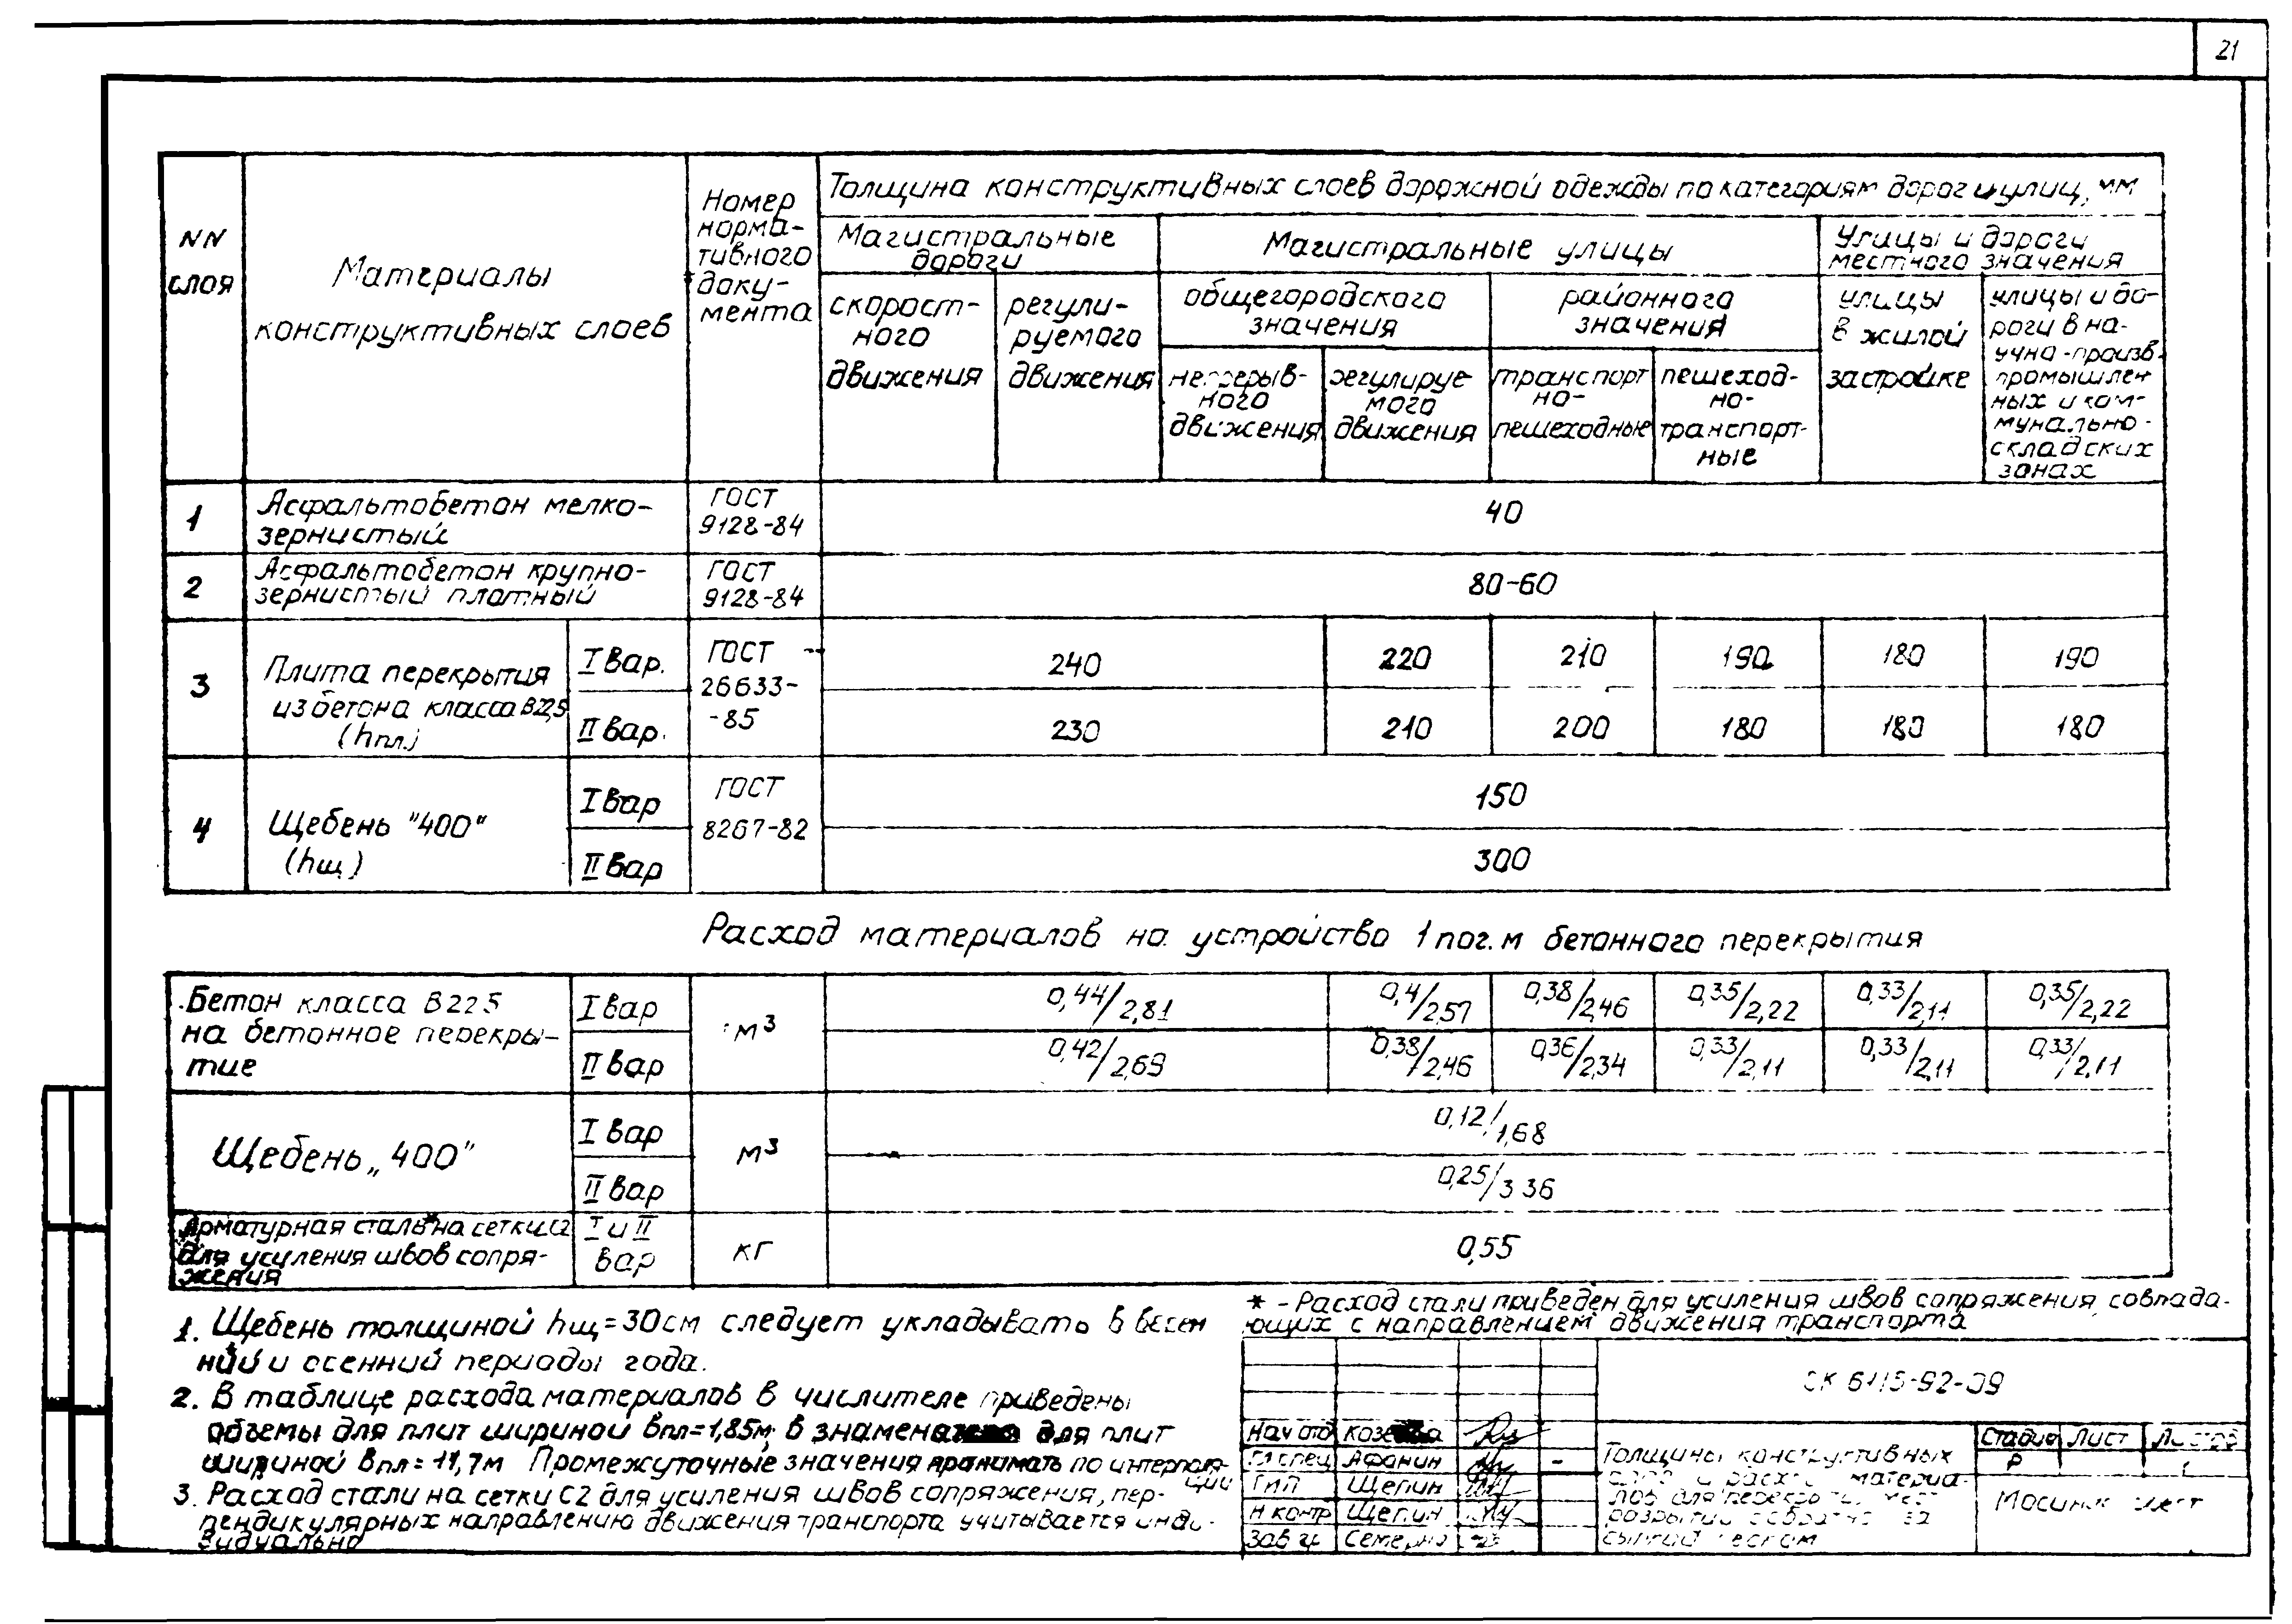 21
NN слоя
Материалы конструктивных слоев
Номер нормативного документа
Толщина конструктивных слоев дорожной одежды по категориям дорог и улиц, мм
Магистральные дороги
Магистральные улицы
Улицы и дороги местного значения
скоростного движения
регулируемого движения
общегородского значения
районного значения
улицы в жилой застройке
улицы и дороги в научно-произв. промышленных и коммунально-складских зонах
непрерывного движения
регулируемого движения
транспортно-пешеходные
пешеходно-транспортные
1 Асфальтобетон мелкозернистый ГОСТ 9128-84 40
2 Асфальтобетон крупнозернистый плотный ГОСТ 9128-84 80-60
3 Плита перекрытия из бетона класса В22,5 (hпл.) ГОСТ 26633-85
I вар. 240 220 210 190 180 190
II вар. 230 210 200 180 180 180
4 Щебень "400" (hщ) ГОСТ 8267-82
I вар 150
II вар 300
Расход материалов на устройство 1 пог. м бетонного перекрытия
Бетон класса В 22 5 на бетонное перекрытие м3
I вар 0,44/2,81 0,4/2,57 0,38/2,46 0,35/2,22 0,33/2,11 0,35/2,22
II вар 0,42/2,69 0,38/2,46 0,36/2,34 0,33/2,11 0,33/2,11 0,33/2,11
Щебень „400" м3
I вар 0,12/1,68
II вар 0,25/3 36
Арматурная сталь* на сетки С2 для усиления швов сопряжения I и II вар кг 0,55
* - Расход стали приведен для усиления швов сопряжения, совпадающих с направлением движения транспорта
1. Щебень толщиной hщ=30см следует укладывать в весенний и осенний периоды года.
2. В таблице расхода материалов в числителе приведены
объемы для плит шириной впл=1,85м, в для плит
шириной впл=11,7м Промежуточные значения принимать по интерполяции
3. Расход стали на сетки С2 для усиления швов сопряжения, перпендикулярных направлению движения транспорта учитывается индивидуально
СК 6115-92-09
Нач отд
Гл спец Афонин
ГИП Щепин
Н контр Щепин
Толщины конструктивных
Стадия Лист Листов
Р